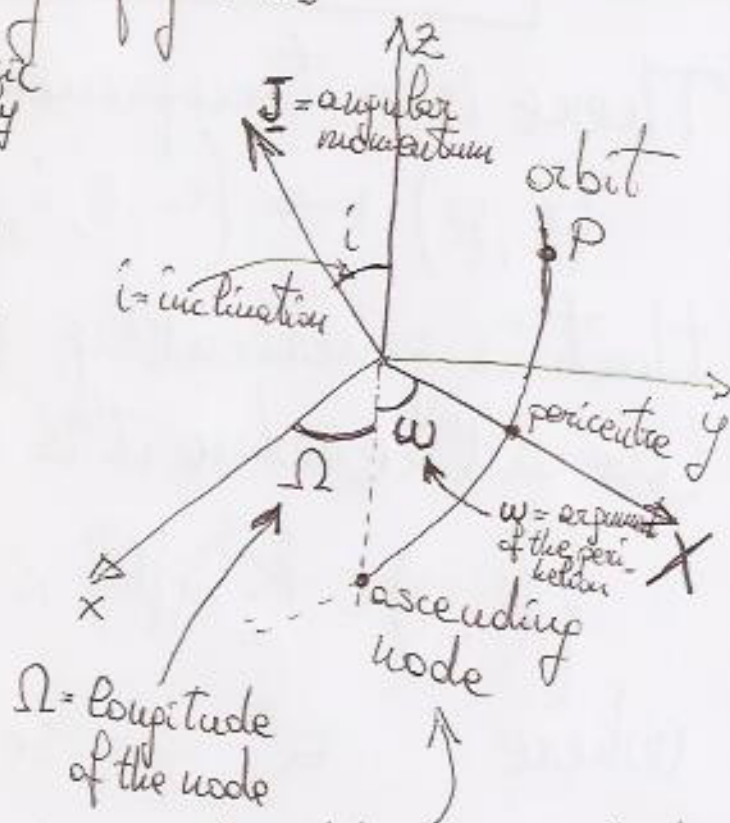 z
J = angular
momentum
orbit
P
i
i = inclination
y
pericentre
ω
Ω
ω = argument
of the peri-
helion
X
x
ascending
node
Ω = longitude
of the node